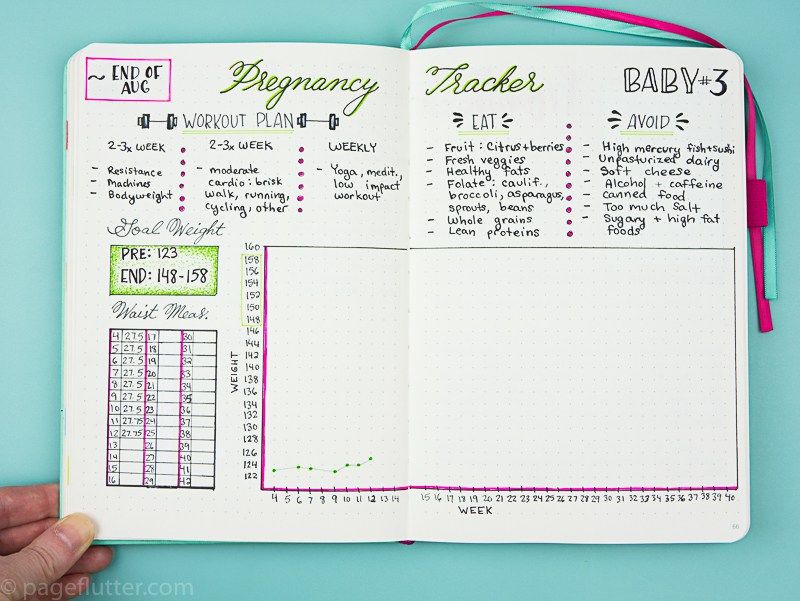 ~ END OF
AUG
Pregnancy Tracker
BABY #3
WORKOUT PLAN
2-3x WEEK
- Resistance
- Machines
- Bodyweight
2-3x WEEK
- moderate
cardio: brisk
walk, running,
cycling, other
WEEKLY
- Yoga, medit.,
low impact
workout
EAT
- Fruit: Citrus + berries
- Fresh veggies
- Healthy fats
- Folate: caulif.,
broccoli, asparagus,
sprouts, beans
- Whole grains
- Lean proteins
AVOID
- High mercury fish + sushi
- Unpasturized dairy
- Soft cheese
- Alcohol + caffeine
- Canned food
- Too much salt
- Sugary + high fat
foods
Goal Weight
PRE: 123
END: 148-158
Waist Meas.
4 27.5 17 30
5 27.5 18 31
6 27.5 19 32
7 27.5 20 33
8 27.5 21 34
9 27.5 22 35
10 27.5 23 36
11 27.75 24 37
12 27.75 25 38
13 26 39
14 27 40
15 28 41
16 29 42
WEIGHT
160
158
156
154
152
150
148
146
144
142
140
138
136
134
132
130
128
126
124
122
4 5 6 7 8 9 10 11 12 13 14 15 16 17 18 19 20 21 22 23 24 25 26 27 28 29 30 31 32 33 34 35 36 37 38 39 40
WEEK
66
© pageflutter.com